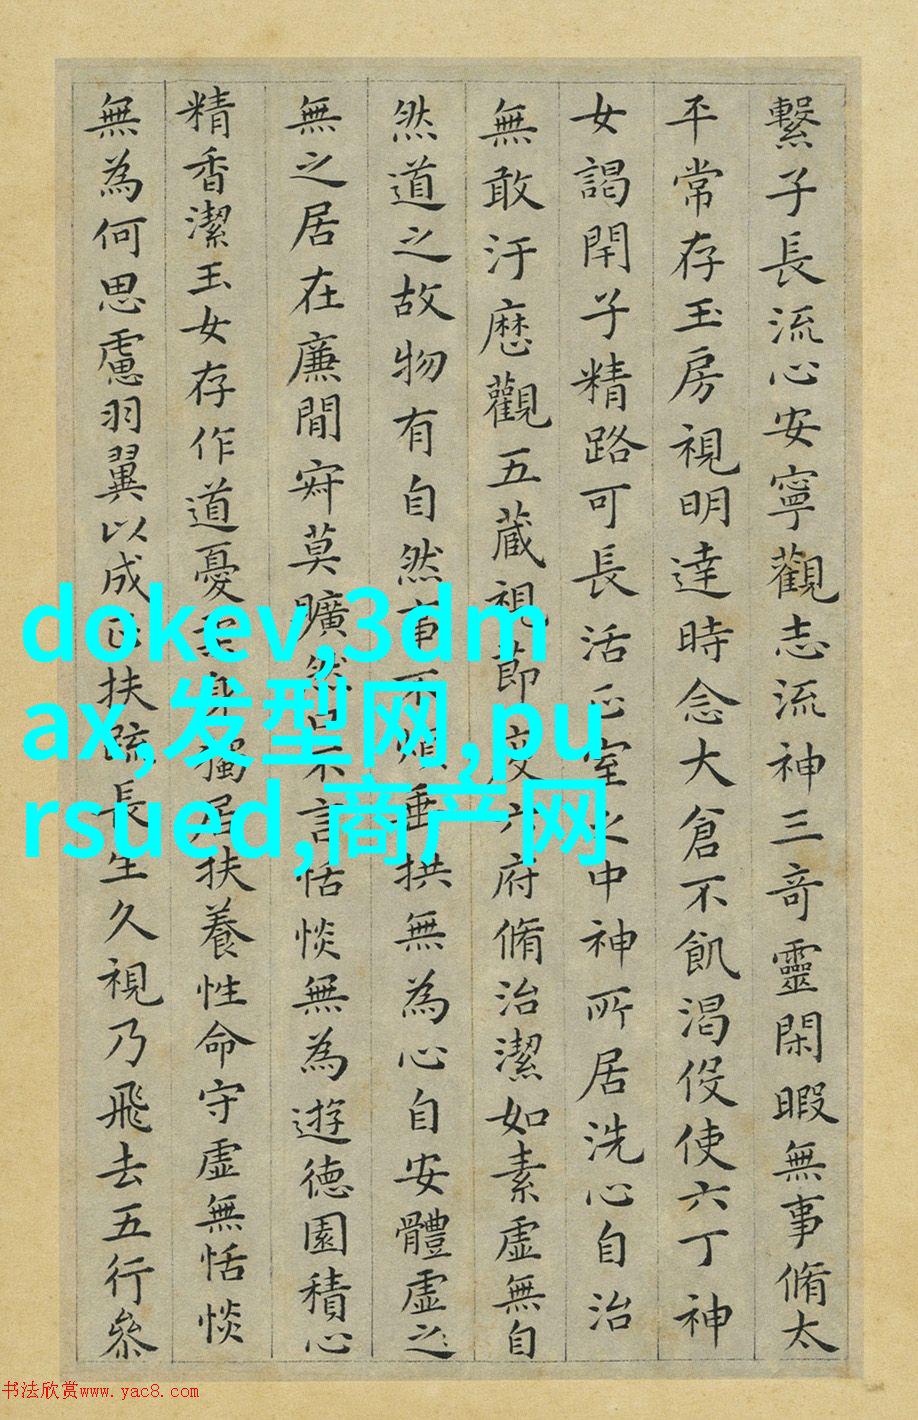 繫子長流心安寧觀志流神三奇靈閑暇無事脩太
平常存玉房視明達時念大倉不飢渴伇使六丁神
女謁閇子精路可長活正室之中神所居洗心自治
無敢汙歷觀五藏視節度六府脩治潔如素虛無自
然道之故物有自然事不煩垂拱無為心自安體虛之
無之居在廉間寂莫曠然口不言恬惔無為遊德園積心
精香潔玉女存作道憂柔身獨居扶養性命守虛無恬惔
無為何思慮羽翼以成正扶疏長生久視乃飛去五行參
dokev,3dm
ax,发型网,pu
rsued,商产网
书法欣赏www.yac8.com